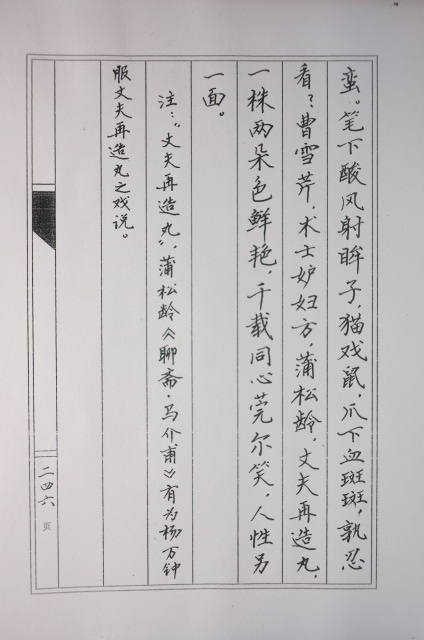 蛮。笔下酸风射眸子，猫戏鼠，爪下血斑斑，孰忍
看？曹雪芹，术士妒妇方，蒲松龄，丈夫再造丸，
一株两朵色鲜艳，千载同心莞尔笑，人性另
一面。
注：“丈夫再造丸”，蒲松龄《聊斋·马介甫》有为杨万钟
服丈夫再造丸之戏说。
二四六
页